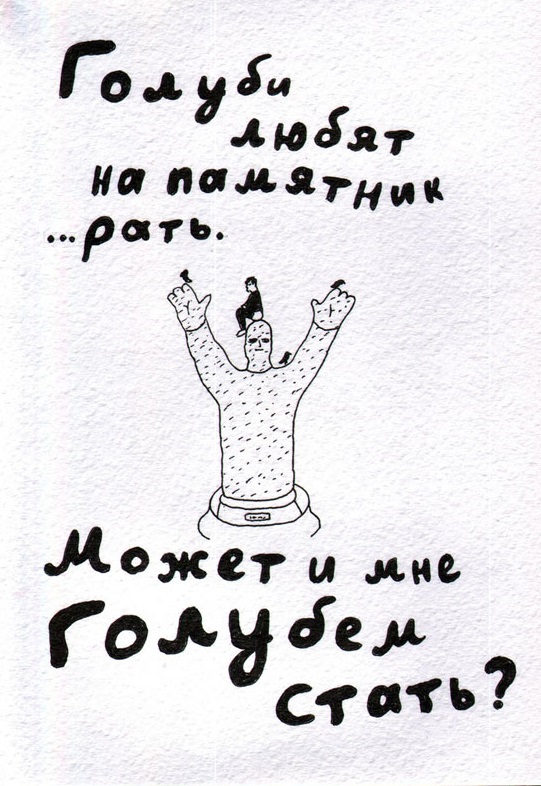 Голуби
любят
на памятник
...рать.
Может и мне
Голубем
стать?